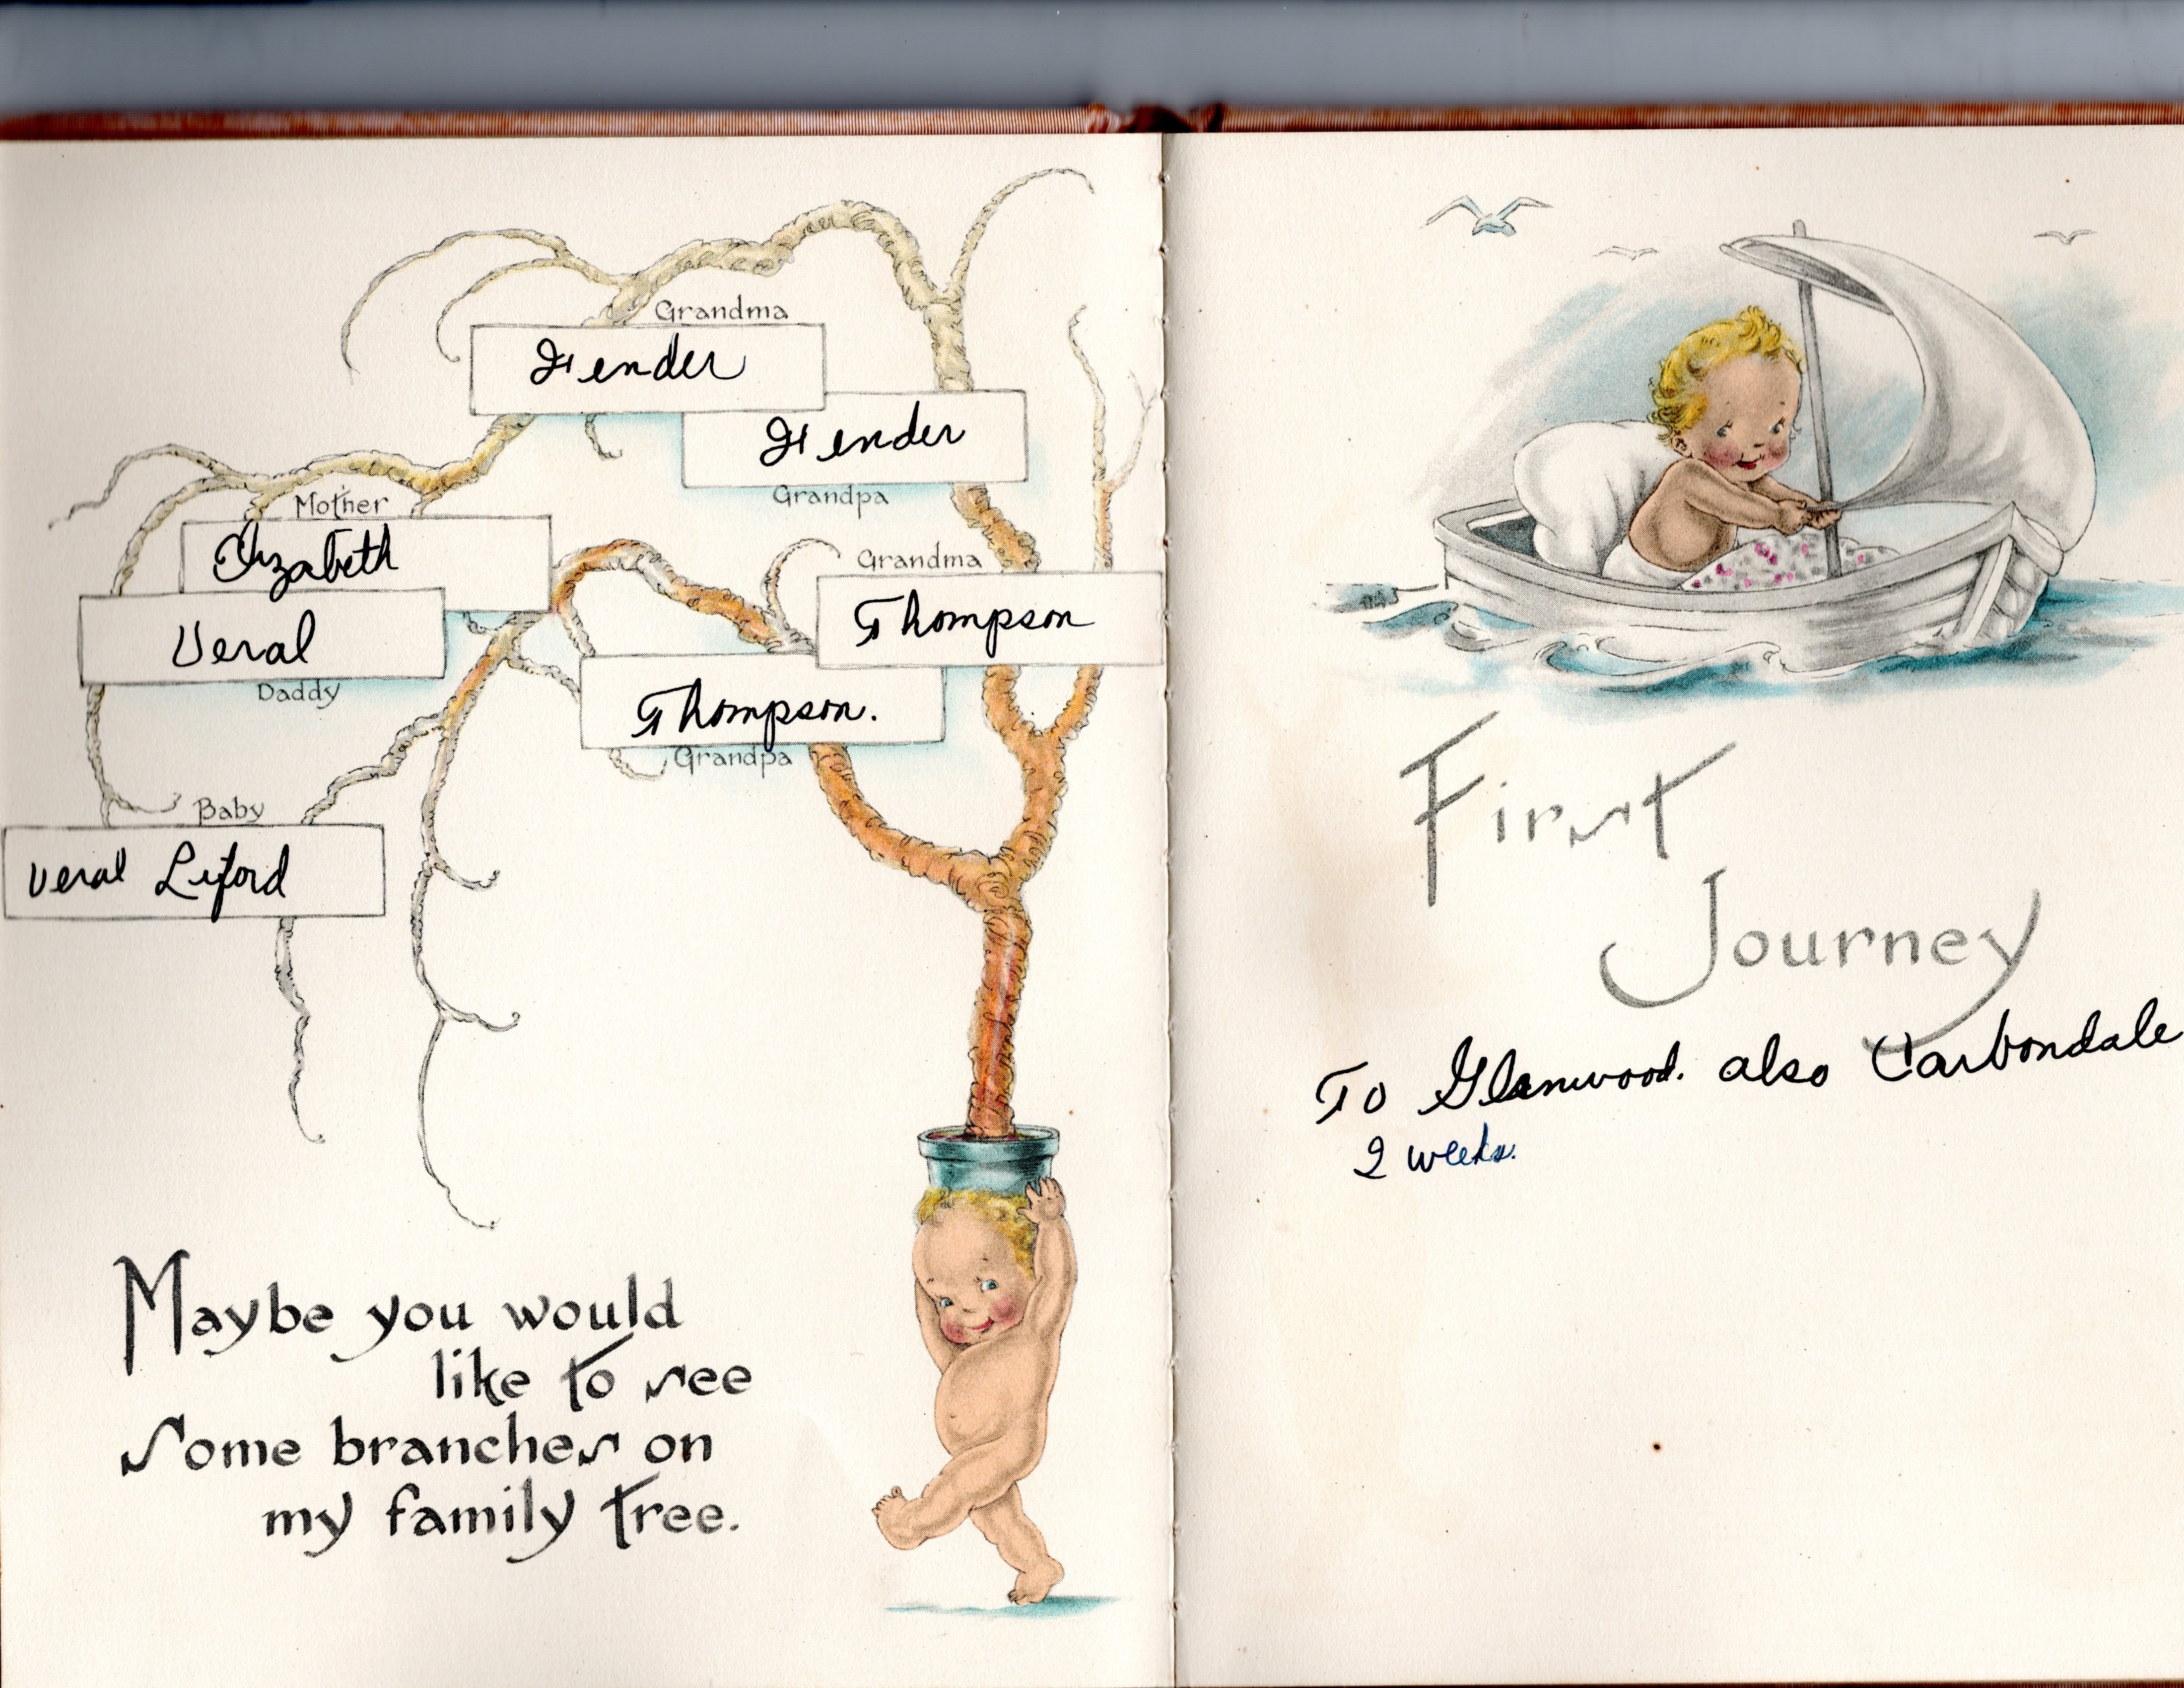 Grandma
Fender
Fender
Grandpa
Mother
Elizabeth
Veral
Daddy
Grandma
Thompson
Thompson.
Grandpa
Baby
Veral Liford
Maybe you would
like to see
Some branches on
my family tree.
First
Journey
To Glenwood. also Carbondale
2 weeks.